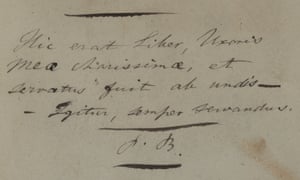 Hic erat Liber, Uxoris
Meæ Charissimæ, et
servatus fuit ab undis—
— Igitur, semper servandus.
P. B.